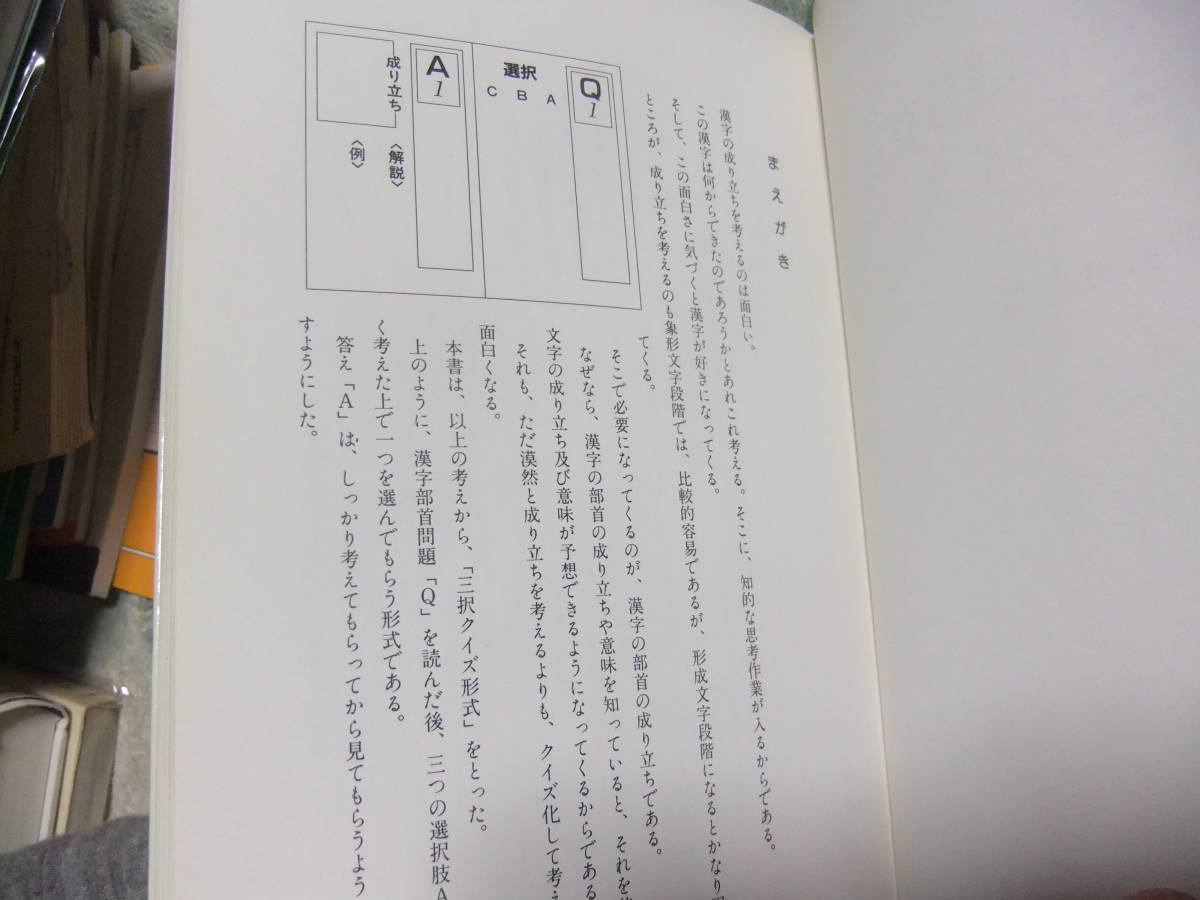 まえがき
漢字の成り立ちを考えるのは面白い。
この漢字は何からできたのであろうかとあれこれ考える。そこに、知的な思考作業が入るからである。
そして、この面白さに気づくと漢字が好きになってくる。
ところが、成り立ちを考えるのも象形文字段階では、比較的容易であるが、形成文字段階になるとかなり
てくる。
そこで必要になってくるのが、漢字の部首の成り立ちである。
なぜなら、漢字の部首の成り立ちや意味を知っていると、それを
文字の成り立ち及び意味が予想できるようになってくるからである
それも、ただ漠然と成り立ちを考えるよりも、クイズ化して考え
面白くなる。
本書は、以上の考えから、「三択クイズ形式」をとった。
上のように、漢字部首問題「Q」を読んだ後、三つの選択肢A
く考えた上で一つを選んでもらう形式である。
答え「A」は、しっかり考えてもらってから見てもらうよう
すようにした。
Q1
選択
A
B
C
A1
成り立ち
〈解説〉
〈例〉